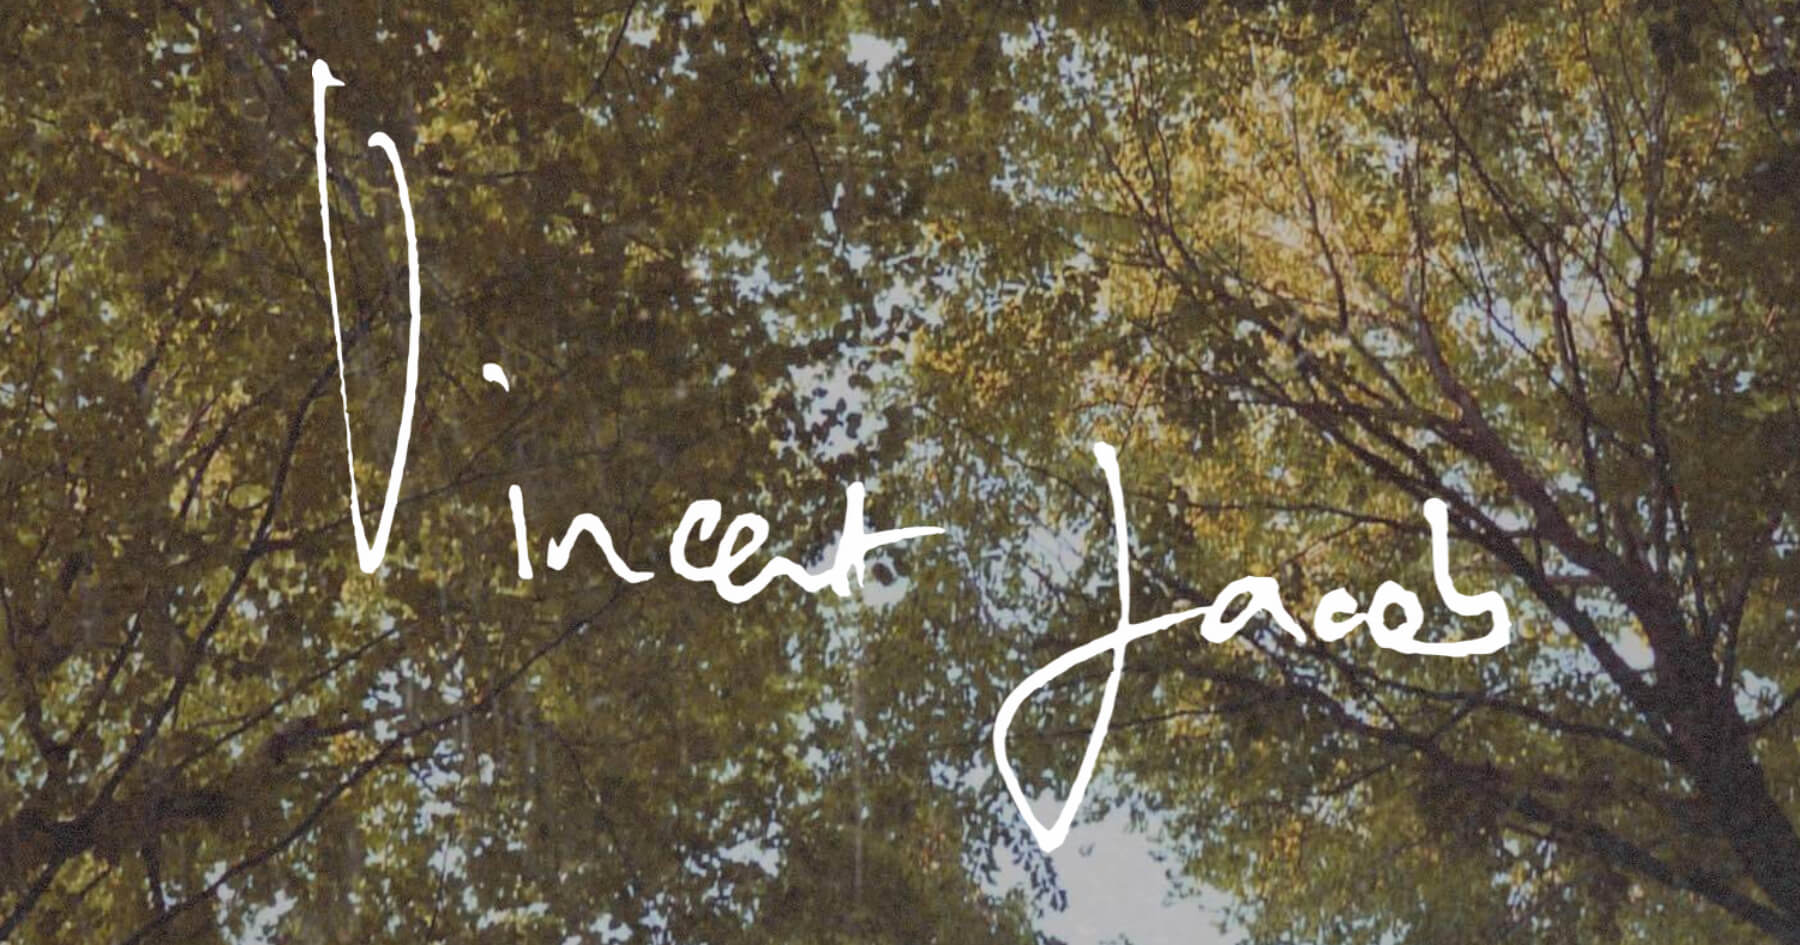 Vincent Jacob